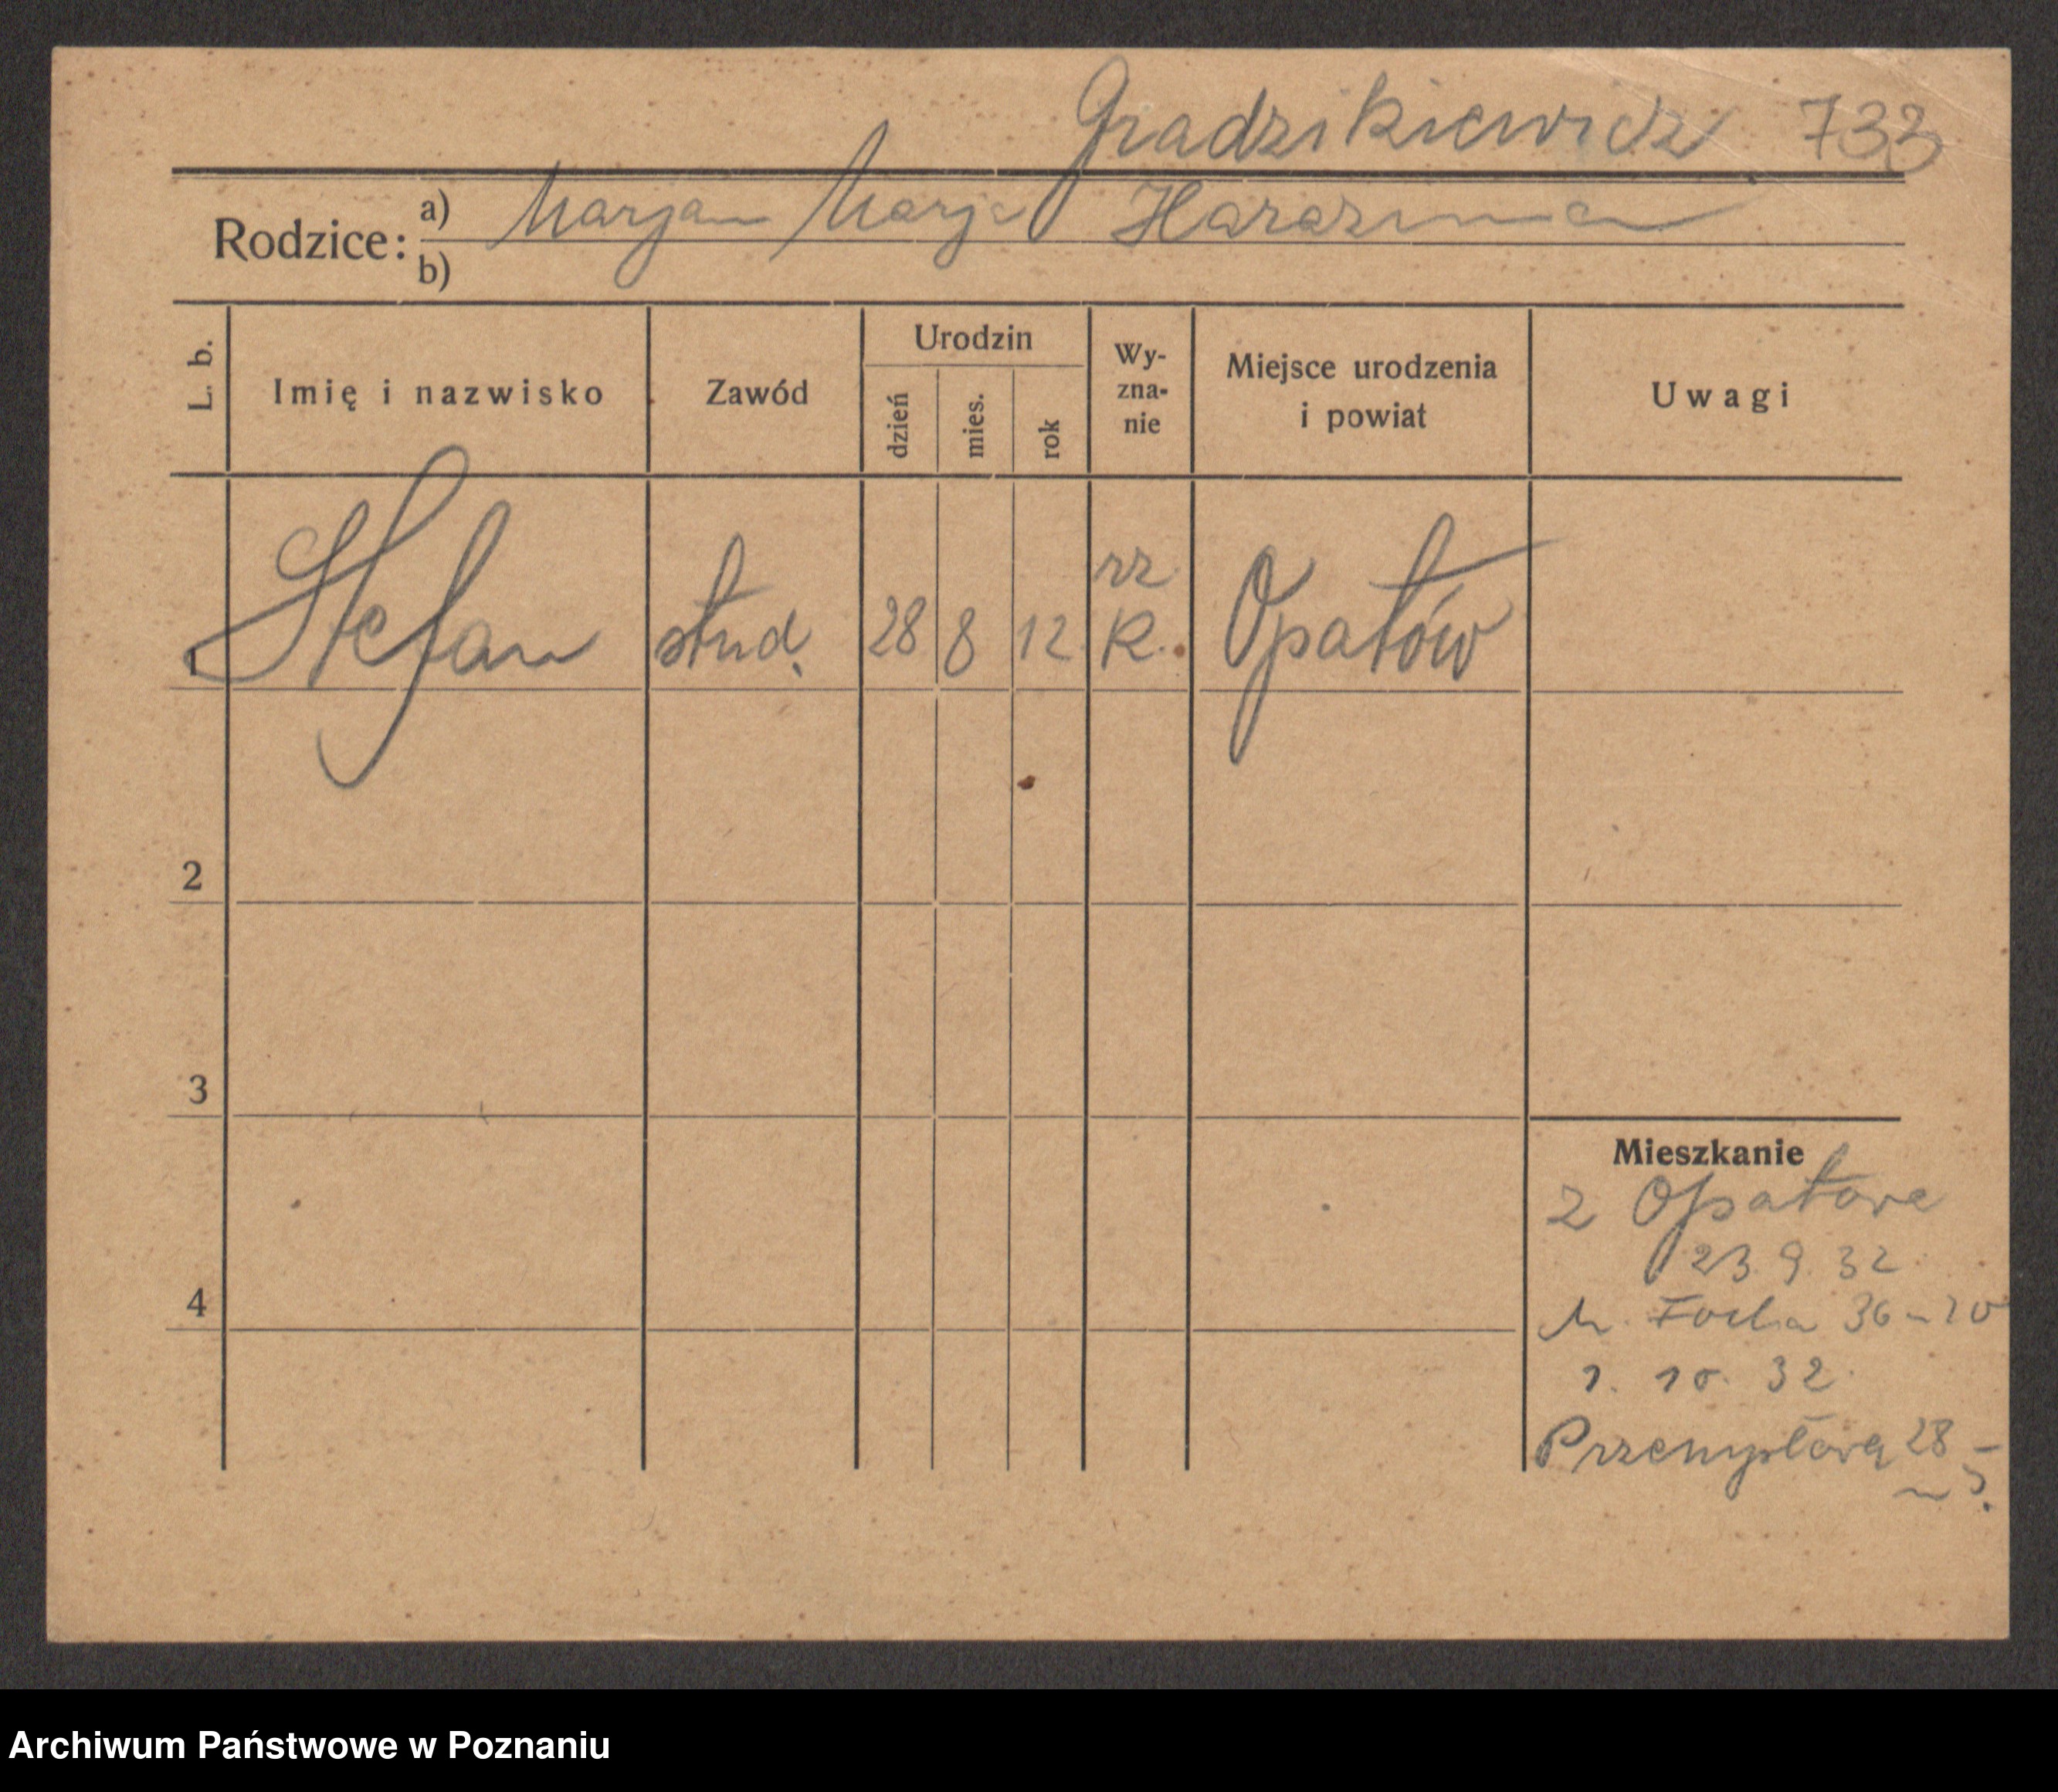 Gradzikiewicz 733
Rodzice: a) Marjan Marja Harazim
b)
L. b. Imię i nazwisko Zawód Urodzin dzień mies. rok Wy-zna-nie Miejsce urodzenia i powiat Uwagi
1 Stefan stud. 28 8 12 rz K. Opatów
2
3
4
Mieszkanie
z Opatowa
23. 9. 32
M. Focha 36 - 10
1. 10. 32.
Przemysłowa 28 -
5.
Archiwum Państwowe w Poznaniu